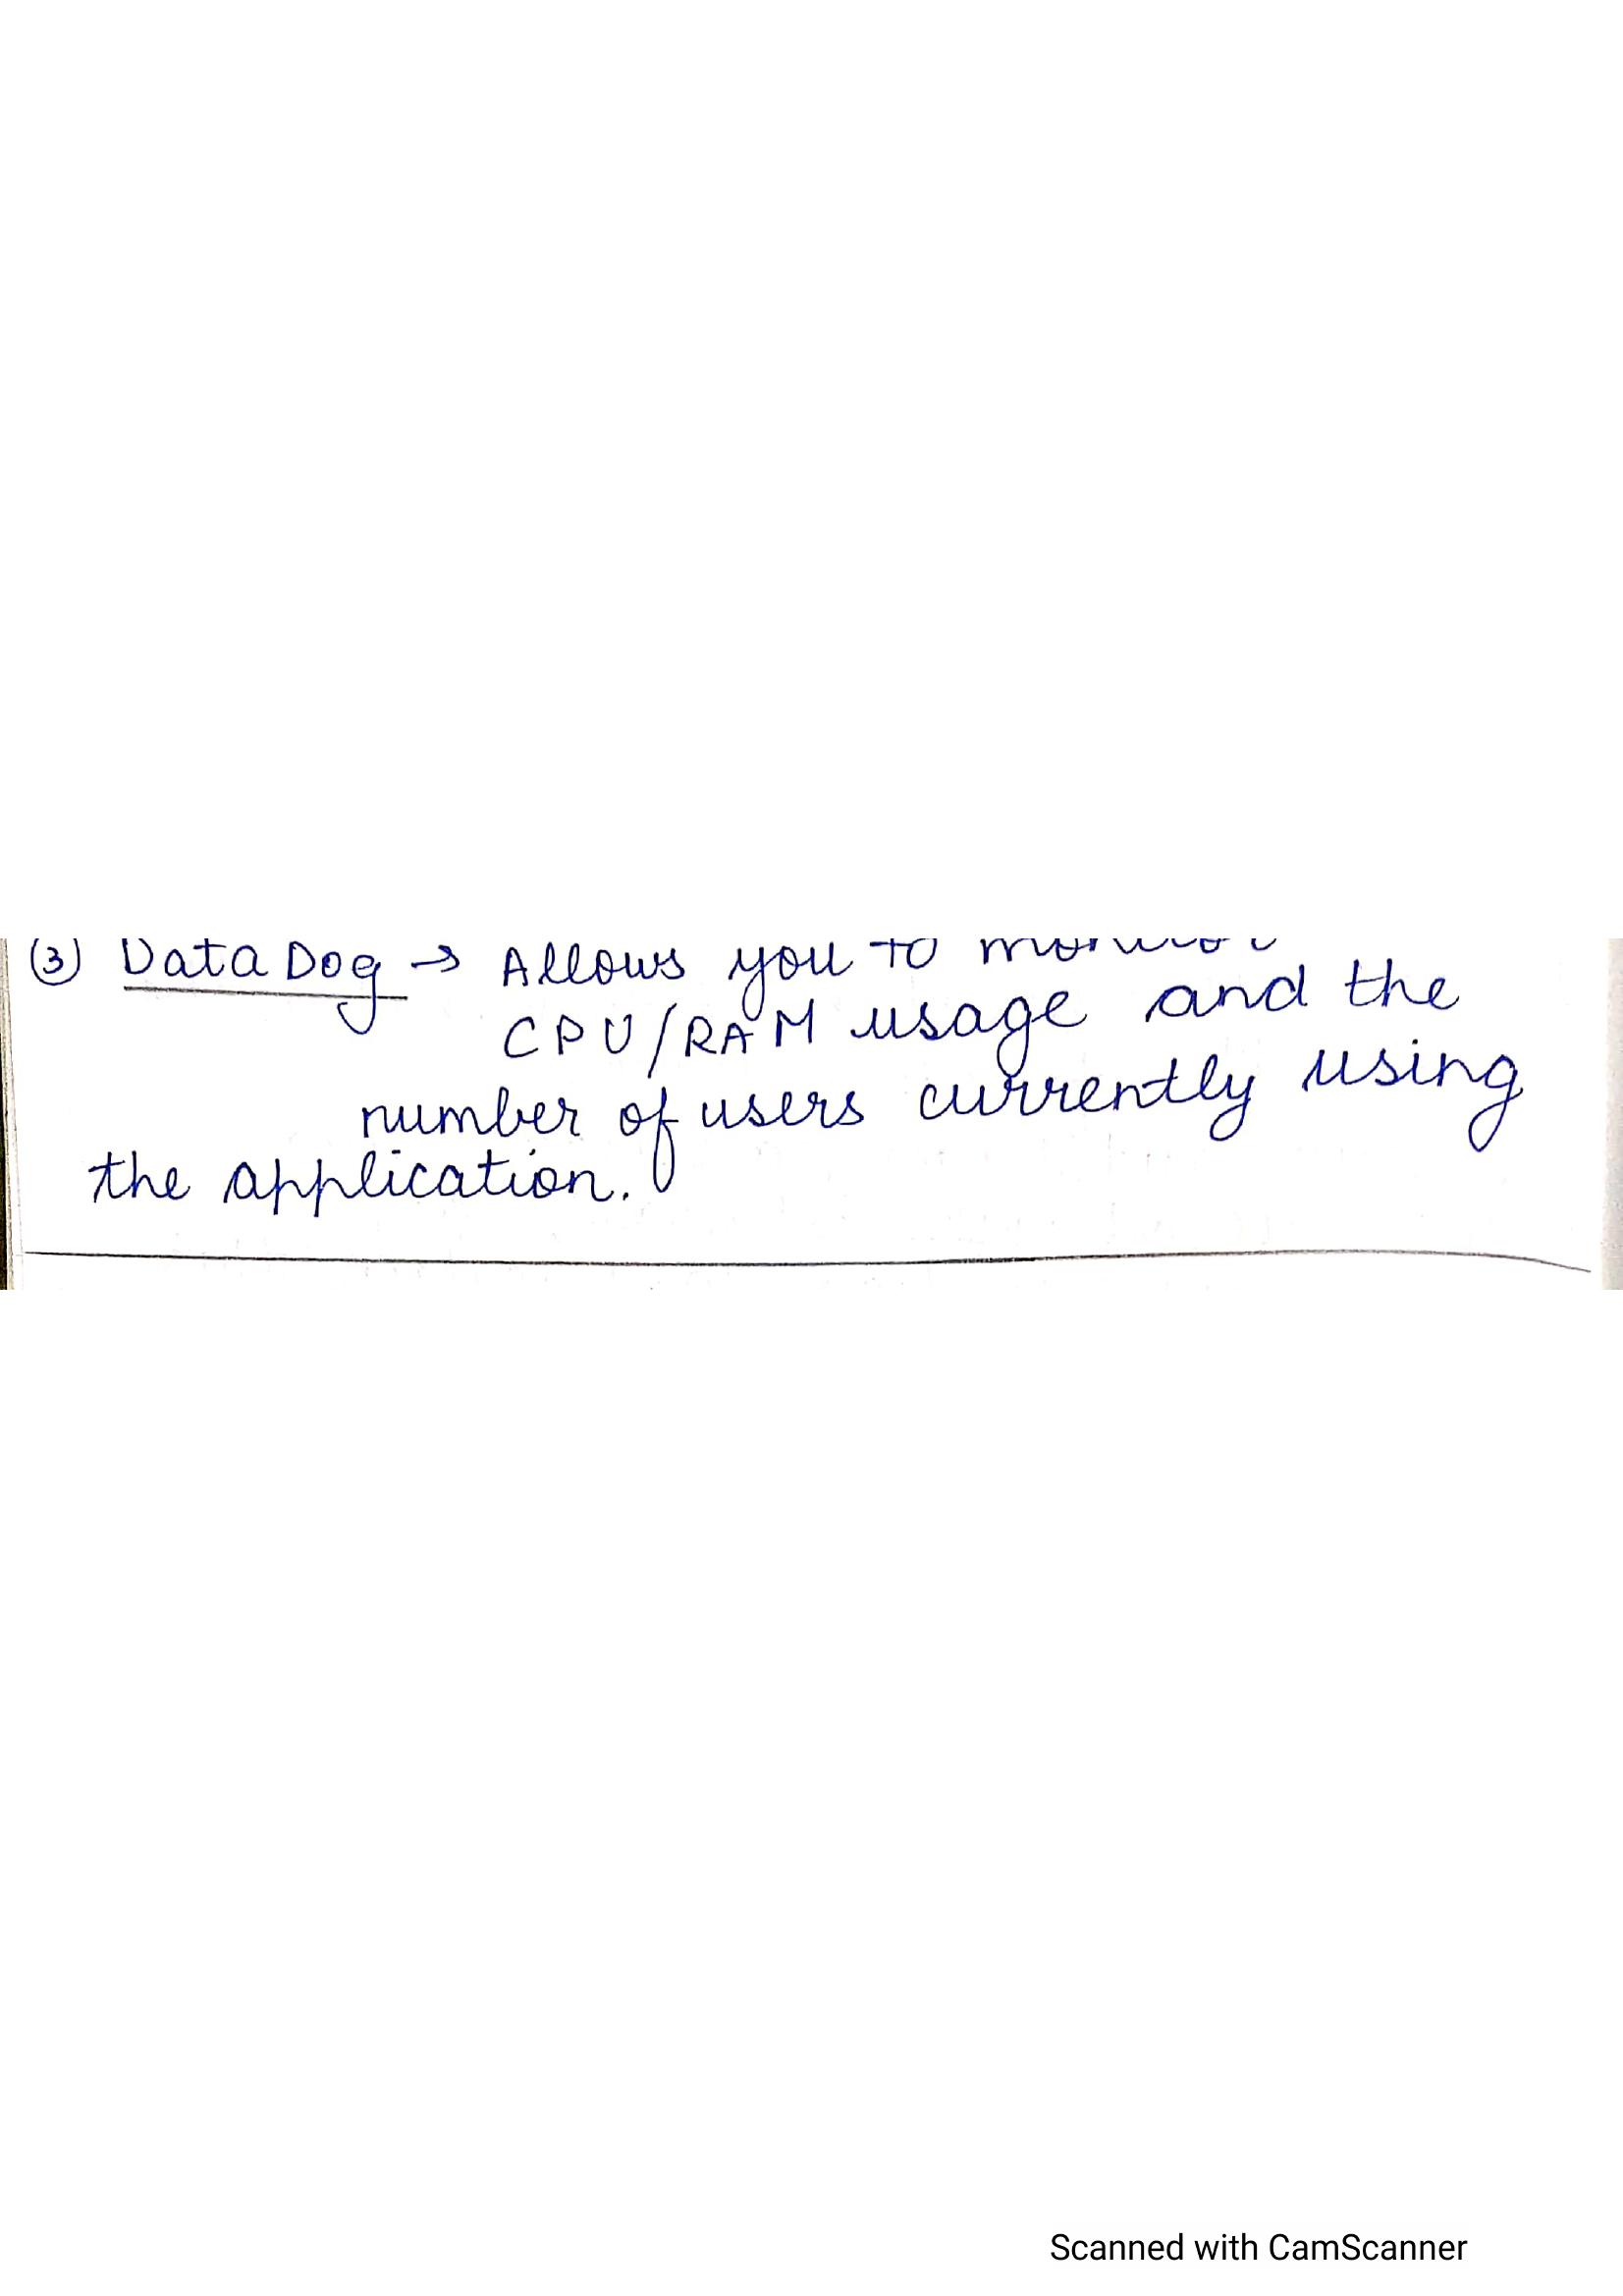 (3) DataDog → Allows you to monitor
CPU/RAM usage and the
number of users currently using
the application.
Scanned with CamScanner